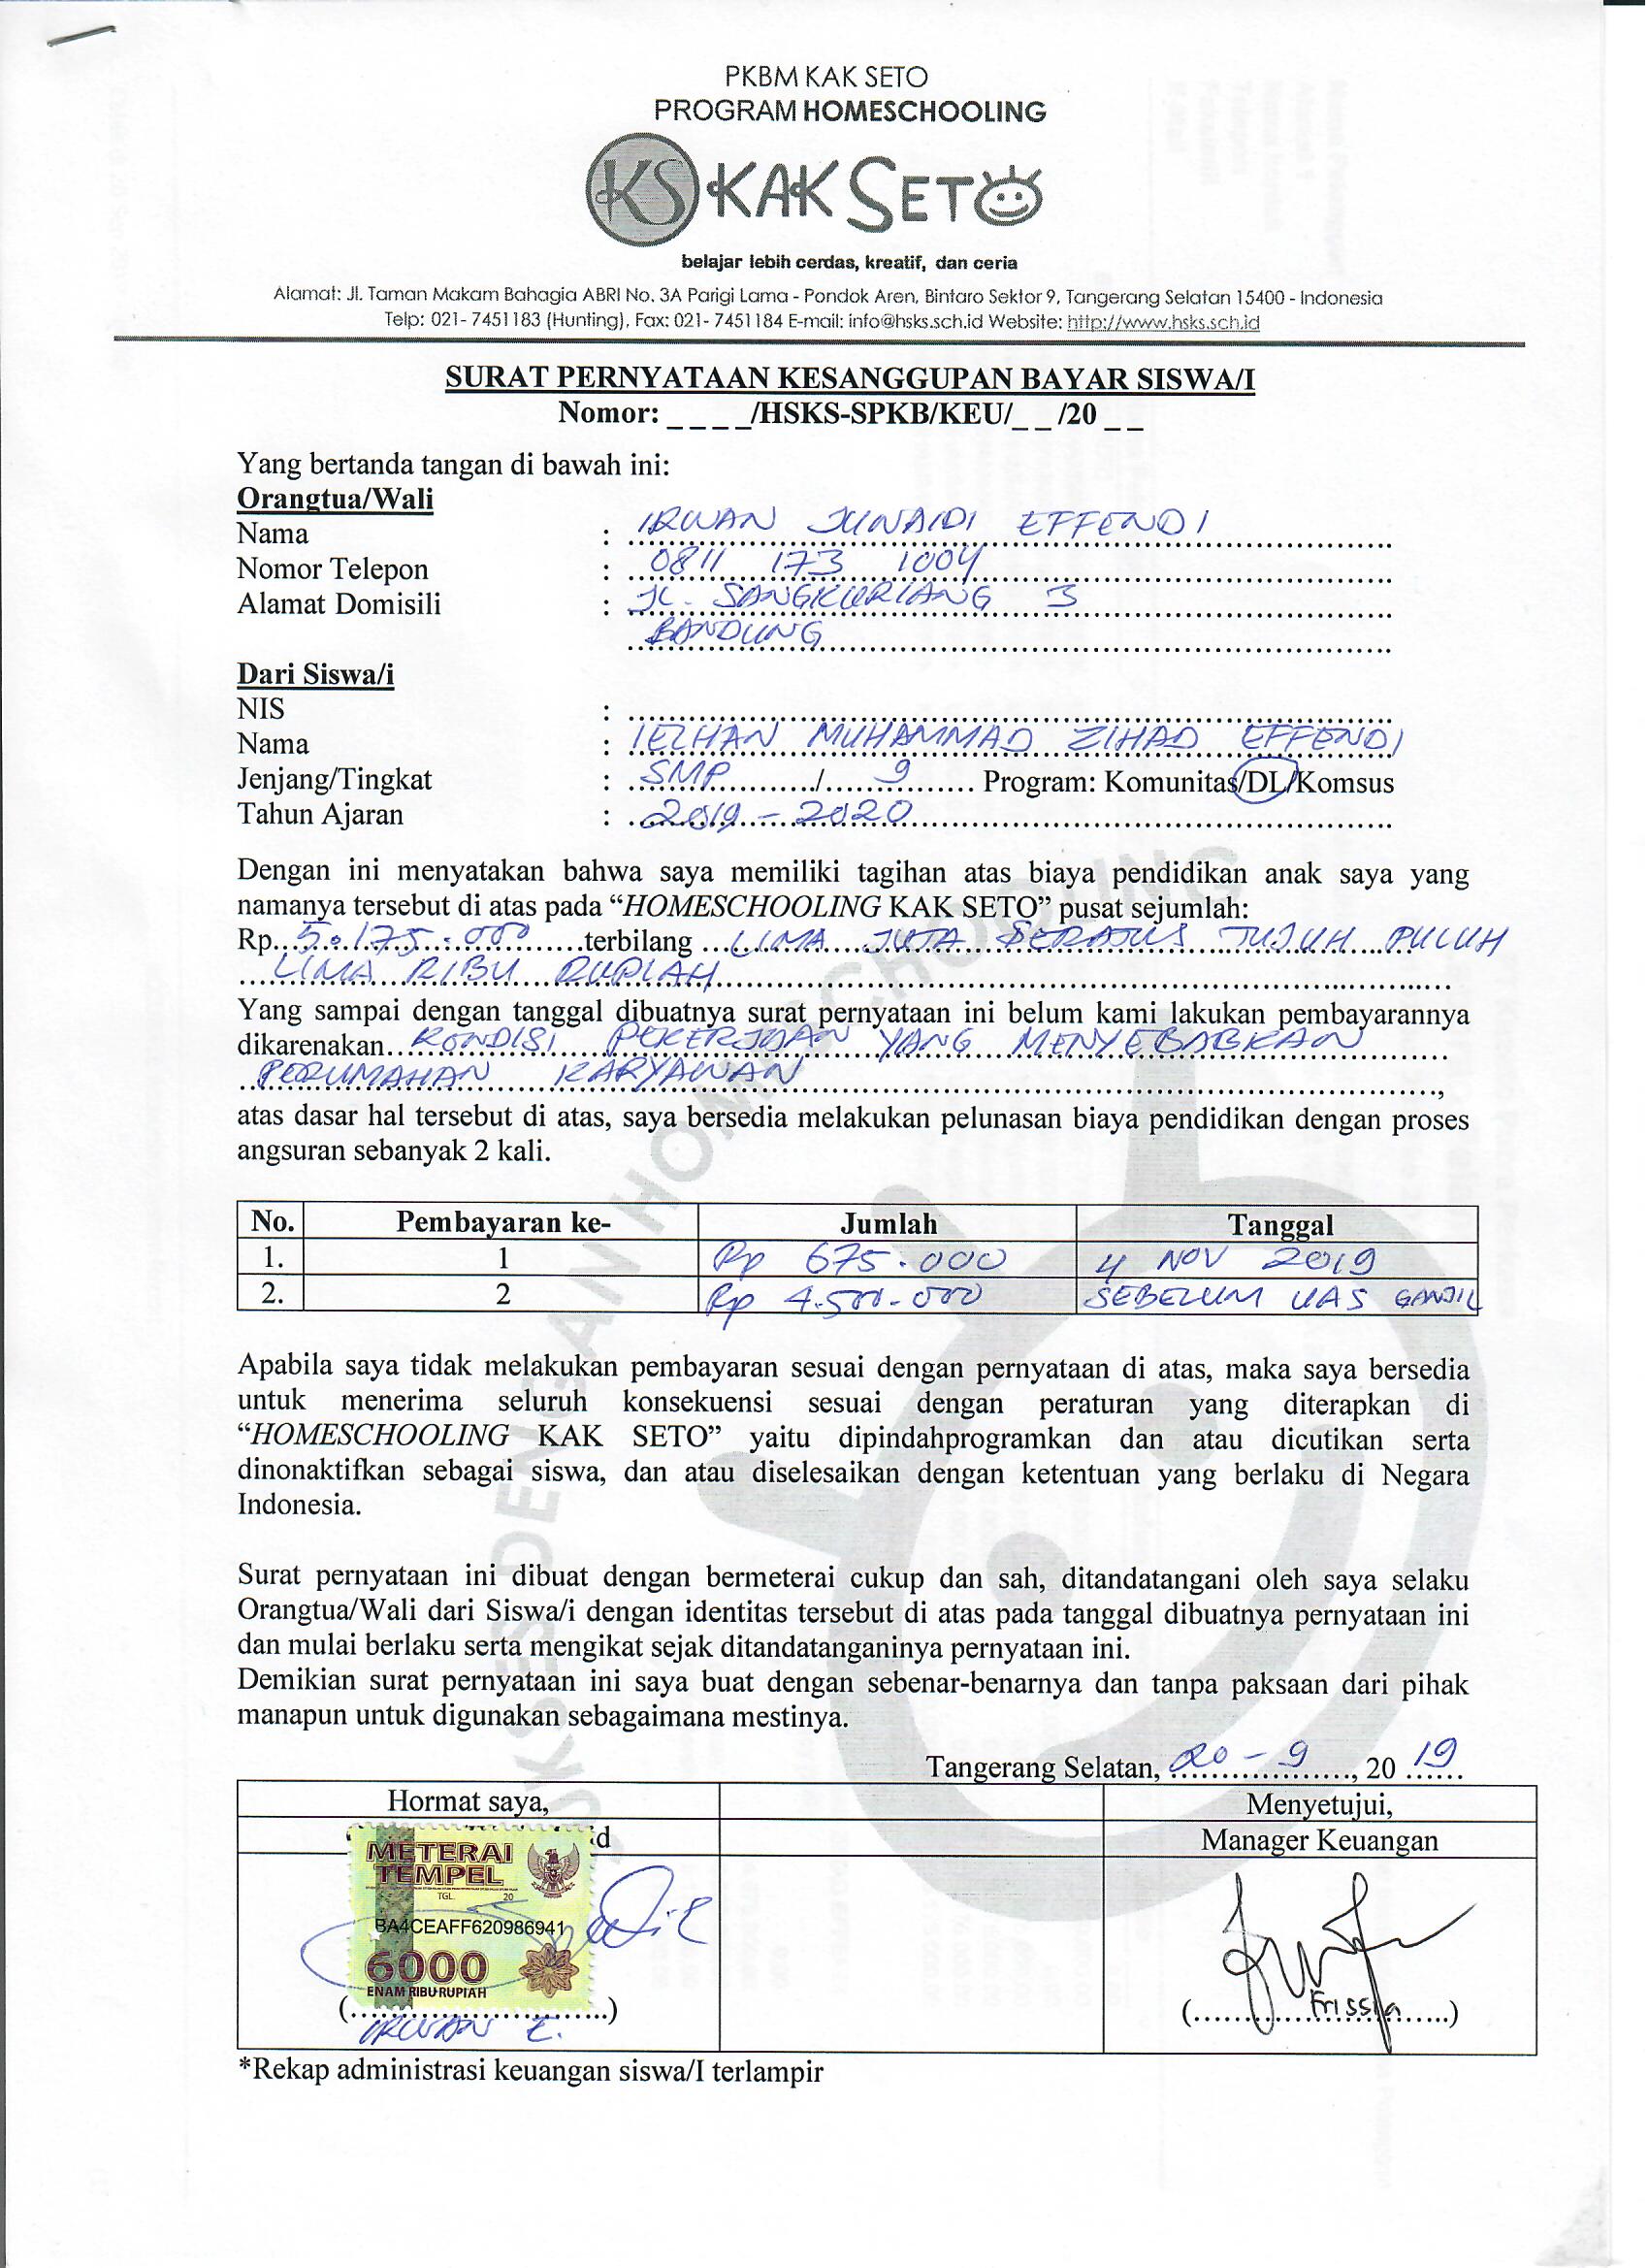 PKBM KAK SETO
PROGRAM HOMESCHOOLING
KS KAK SETO
belajar lebih cerdas, kreatif, dan ceria
Alamat: Jl. Taman Makam Bahagia ABRI No. 3A Parigi Lama - Pondok Aren, Bintaro Sektor 9, Tangerang Selatan 15400 - Indonesia
Telp: 021- 7451183 (Hunting), Fax: 021- 7451184 E-mail: info@hsks.sch.id Website: http://www.hsks.sch.id
SURAT PERNYATAAN KESANGGUPAN BAYAR SISWA/I
Nomor: _ _ _ _/HSKS-SPKB/KEU/_ _ /20 _ _
Yang bertanda tangan di bawah ini:
Orangtua/Wali
Nama : IRWAN JUNAIDI EFFENDI
Nomor Telepon : 0811 173 1004
Alamat Domisili : JL. SANGKURIANG 3
BANDUNG
Dari Siswa/i
NIS :
Nama : IEZHAN MUHAMMAD ZIHAD EFFENDI
Jenjang/Tingkat : SMP / 9 Program: Komunitas/DL/Komsus
Tahun Ajaran : 2019 - 2020
Dengan ini menyatakan bahwa saya memiliki tagihan atas biaya pendidikan anak saya yang
namanya tersebut di atas pada “HOMESCHOOLING KAK SETO” pusat sejumlah:
Rp. 5.175.000 terbilang LIMA JUTA SERATUS TUJUH PULUH
LIMA RIBU RUPIAH
Yang sampai dengan tanggal dibuatnya surat pernyataan ini belum kami lakukan pembayarannya
dikarenakan KONDISI PEKERJAAN YANG MENYEBABKAN
PERUMAHAN KARYAWAN ,
atas dasar hal tersebut di atas, saya bersedia melakukan pelunasan biaya pendidikan dengan proses
angsuran sebanyak 2 kali.
No. Pembayaran ke- Jumlah Tanggal
1. 1 Rp 675.000 4 NOV 2019
2. 2 Rp 4.500.000 SEBELUM UAS GANJIL
Apabila saya tidak melakukan pembayaran sesuai dengan pernyataan di atas, maka saya bersedia
untuk menerima seluruh konsekuensi sesuai dengan peraturan yang diterapkan di
“HOMESCHOOLING KAK SETO” yaitu dipindahprogramkan dan atau dicutikan serta
dinonaktifkan sebagai siswa, dan atau diselesaikan dengan ketentuan yang berlaku di Negara
Indonesia.
Surat pernyataan ini dibuat dengan bermeterai cukup dan sah, ditandatangani oleh saya selaku
Orangtua/Wali dari Siswa/i dengan identitas tersebut di atas pada tanggal dibuatnya pernyataan ini
dan mulai berlaku serta mengikat sejak ditandatanganinya pernyataan ini.
Demikian surat pernyataan ini saya buat dengan sebenar-benarnya dan tanpa paksaan dari pihak
manapun untuk digunakan sebagaimana mestinya.
Tangerang Selatan, 20 - 9, 20 19
Hormat saya, Menyetujui,
Manager Keuangan
METERAI
TEMPEL
TGL. 20
BA4CEAFF620986941
6000
ENAM RIBU RUPIAH
IRWAN E.
Frissia
*Rekap administrasi keuangan siswa/I terlampir